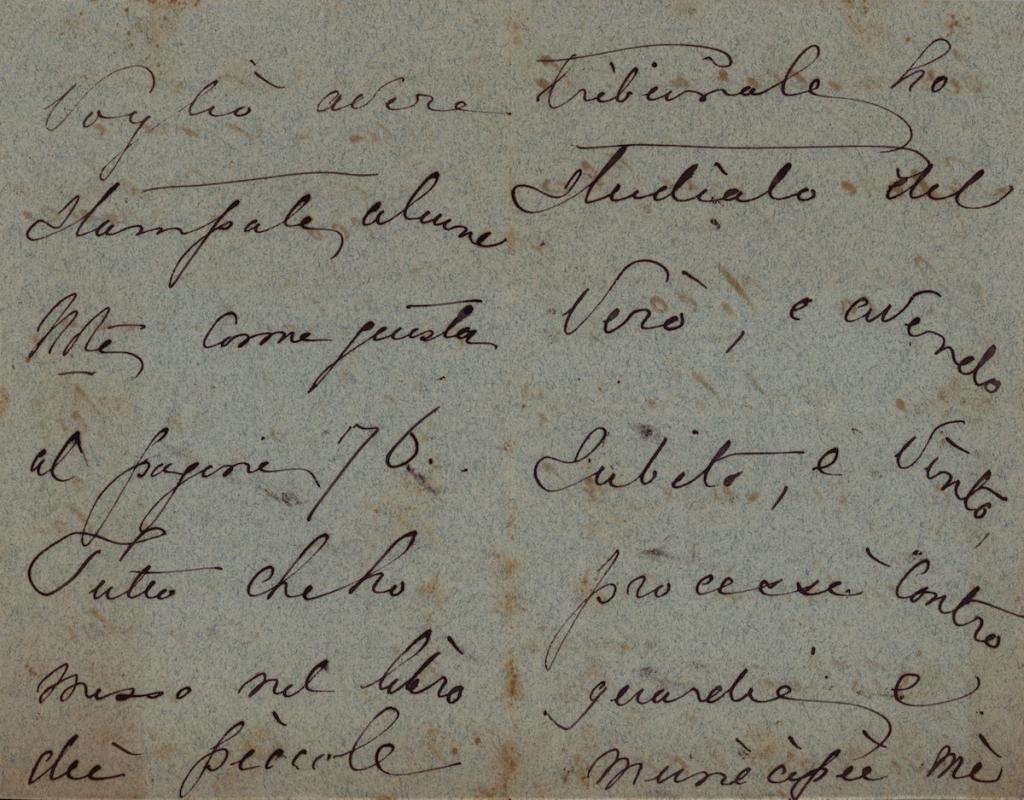 Vogliò avere
stampate, alcune
Note, come questa
al pagine, 76.
Tutto che ho
messo nel libro
dei piccole
tribunale ho
studiato del
Verò, e avendo
subito, e vinto,
processi contro
guardie e
municipii mi